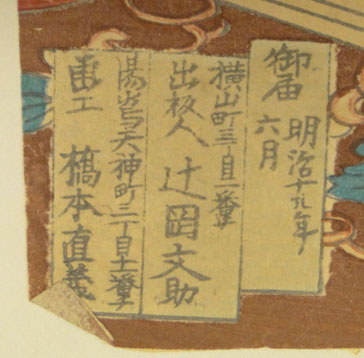 御届
明治十九年
六月
横山町三丁目二番地
出板人 辻岡文助
湯島天神町三丁目十一番地
画工 橋本直義